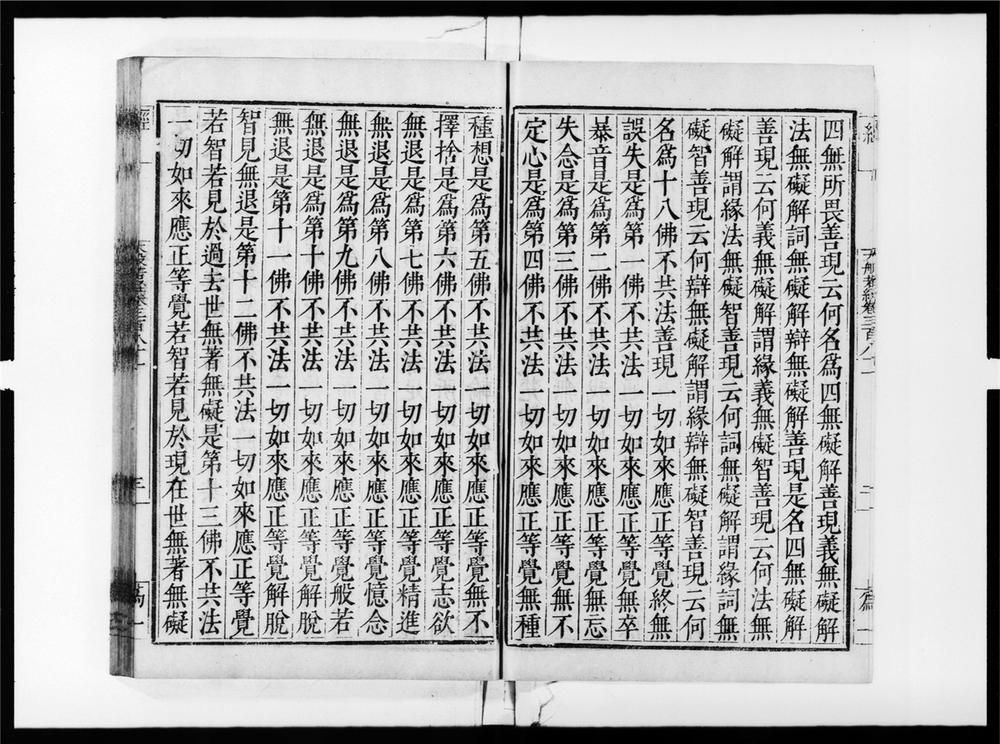 四無所畏善現云何名爲四無礙解善現義無礙解
法無礙解詞無礙解辯無礙解善現是名四無礙解
善現云何義無礙解謂緣義無礙智善現云何法無
礙解謂緣法無礙智善現云何詞無礙解謂緣詞無
礙智善現云何辯無礙解謂緣辯無礙智善現云何
名爲十八佛不共法善現一切如來應正等覺終無
誤失是爲第一佛不共法一切如來應正等覺無卒
暴音是爲第二佛不共法一切如來應正等覺無忘
失念是爲第三佛不共法一切如來應正等覺無不
定心是爲第四佛不共法一切如來應正等覺無種
種想是爲第五佛不共法一切如來應正等覺無不
擇捨是爲第六佛不共法一切如來應正等覺志欲
無退是爲第七佛不共法一切如來應正等覺精進
無退是爲第八佛不共法一切如來應正等覺憶念
無退是爲第九佛不共法一切如來應正等覺般若
無退是爲第十佛不共法一切如來應正等覺解脫
無退是第十一佛不共法一切如來應正等覺解脫
智見無退是第十二佛不共法一切如來應正等覺
若智若見於過去世無著無礙是第十三佛不共法
一切如來應正等覺若智若見於現在世無著無礙